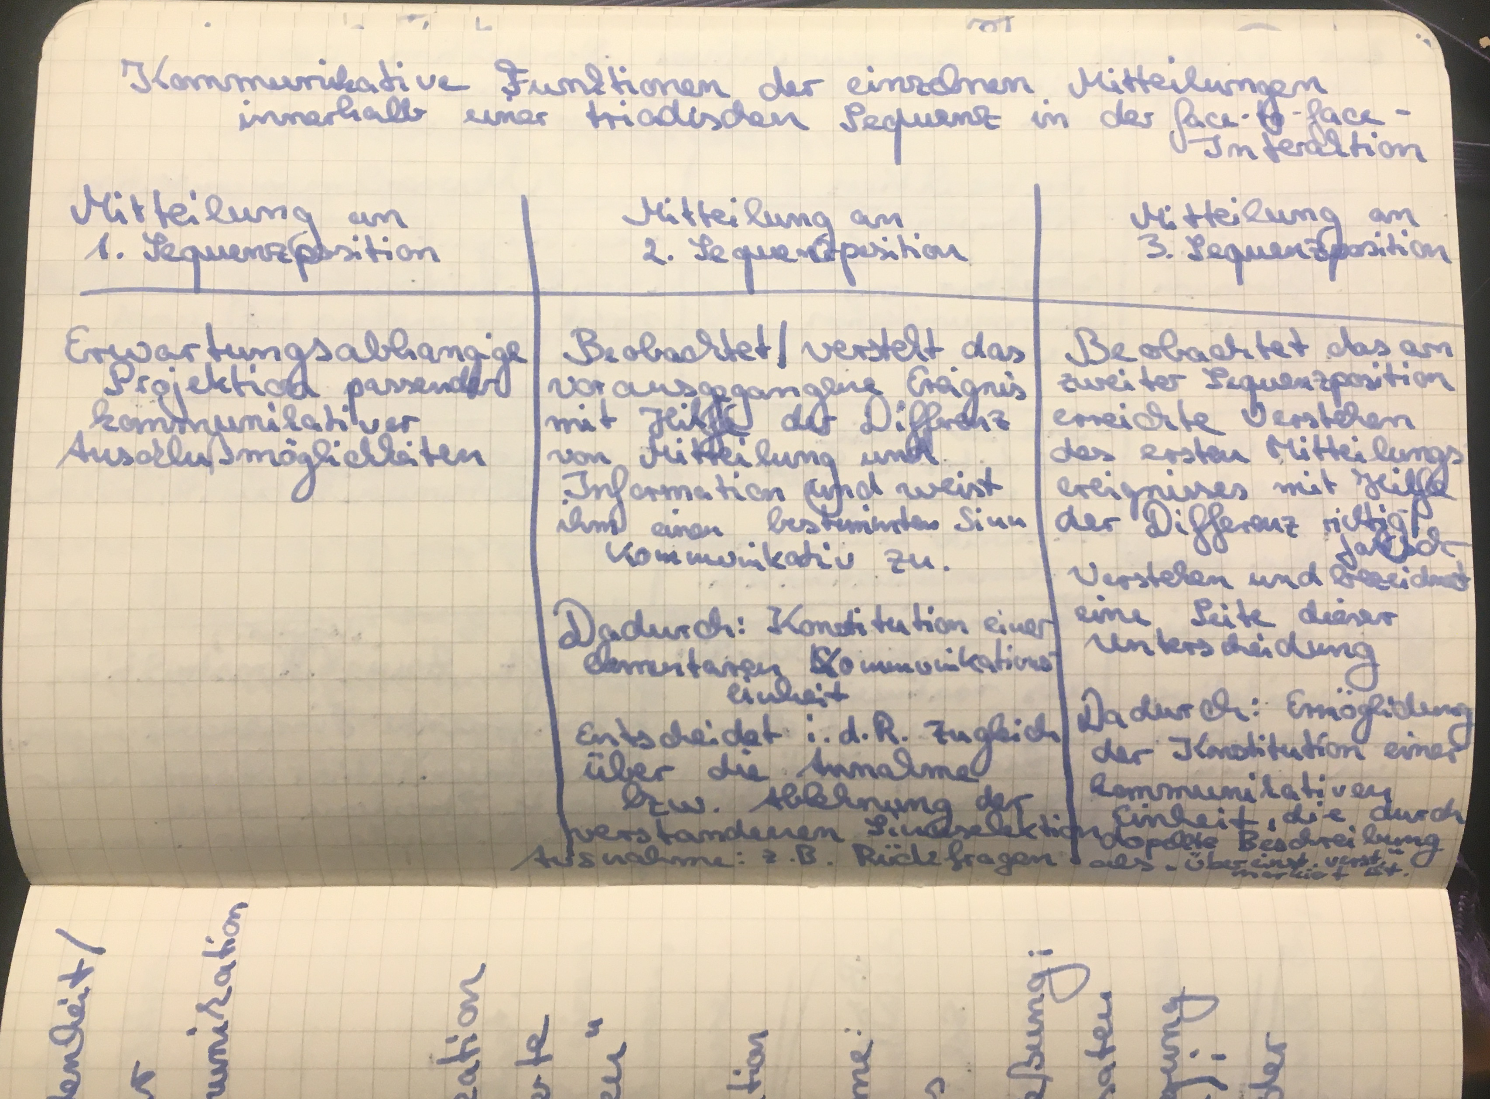 Kommunikative Funktionen der einzelnen Mitteilungen
innerhalb einer triadischen Sequenz in der face-to-face-
Interaktion
Mitteilung an
1. Sequenzposition
Erwartungsabhängige
Projektion passender
kommunikativer
Anschlußmöglichkeiten
Mitteilung an
2. Sequenzposition
Beobachtet/versteht das
vorausgegangene Ereignis
mit Hilfe der Differenz
von Mitteilung und
Information und weist
ihm einen bestimmten Sinn
kommunikativ zu.
Dadurch: Konstitution einer
elementaren Kommunikations-
einheit
Entscheidet i.d.R. zugleich
über die Annahme
bzw. Ablehnung der
verstandenen Sinnselektion
Ausnahme: z.B. Rückfragen
Mitteilung an
3. Sequenzposition
Beobachtet das an
zweiter Sequenzposition
erreichte Verstehen
des ersten Mitteilungs
ereignisses mit Hilfe
der Differenz richtig/
falsch-
Verstehen und bezeichnet
eine Seite dieser
Unterscheidung
Dadurch: Ermöglichung
der Konstitution einer
kommunikativen
Einheit, die durch
doppelte Beschreibung
als übereinst. verst.
markiert ist.
enheit/
unikation
ation
rte
en"
tion
me:
s
eßung:
saten
gung
der